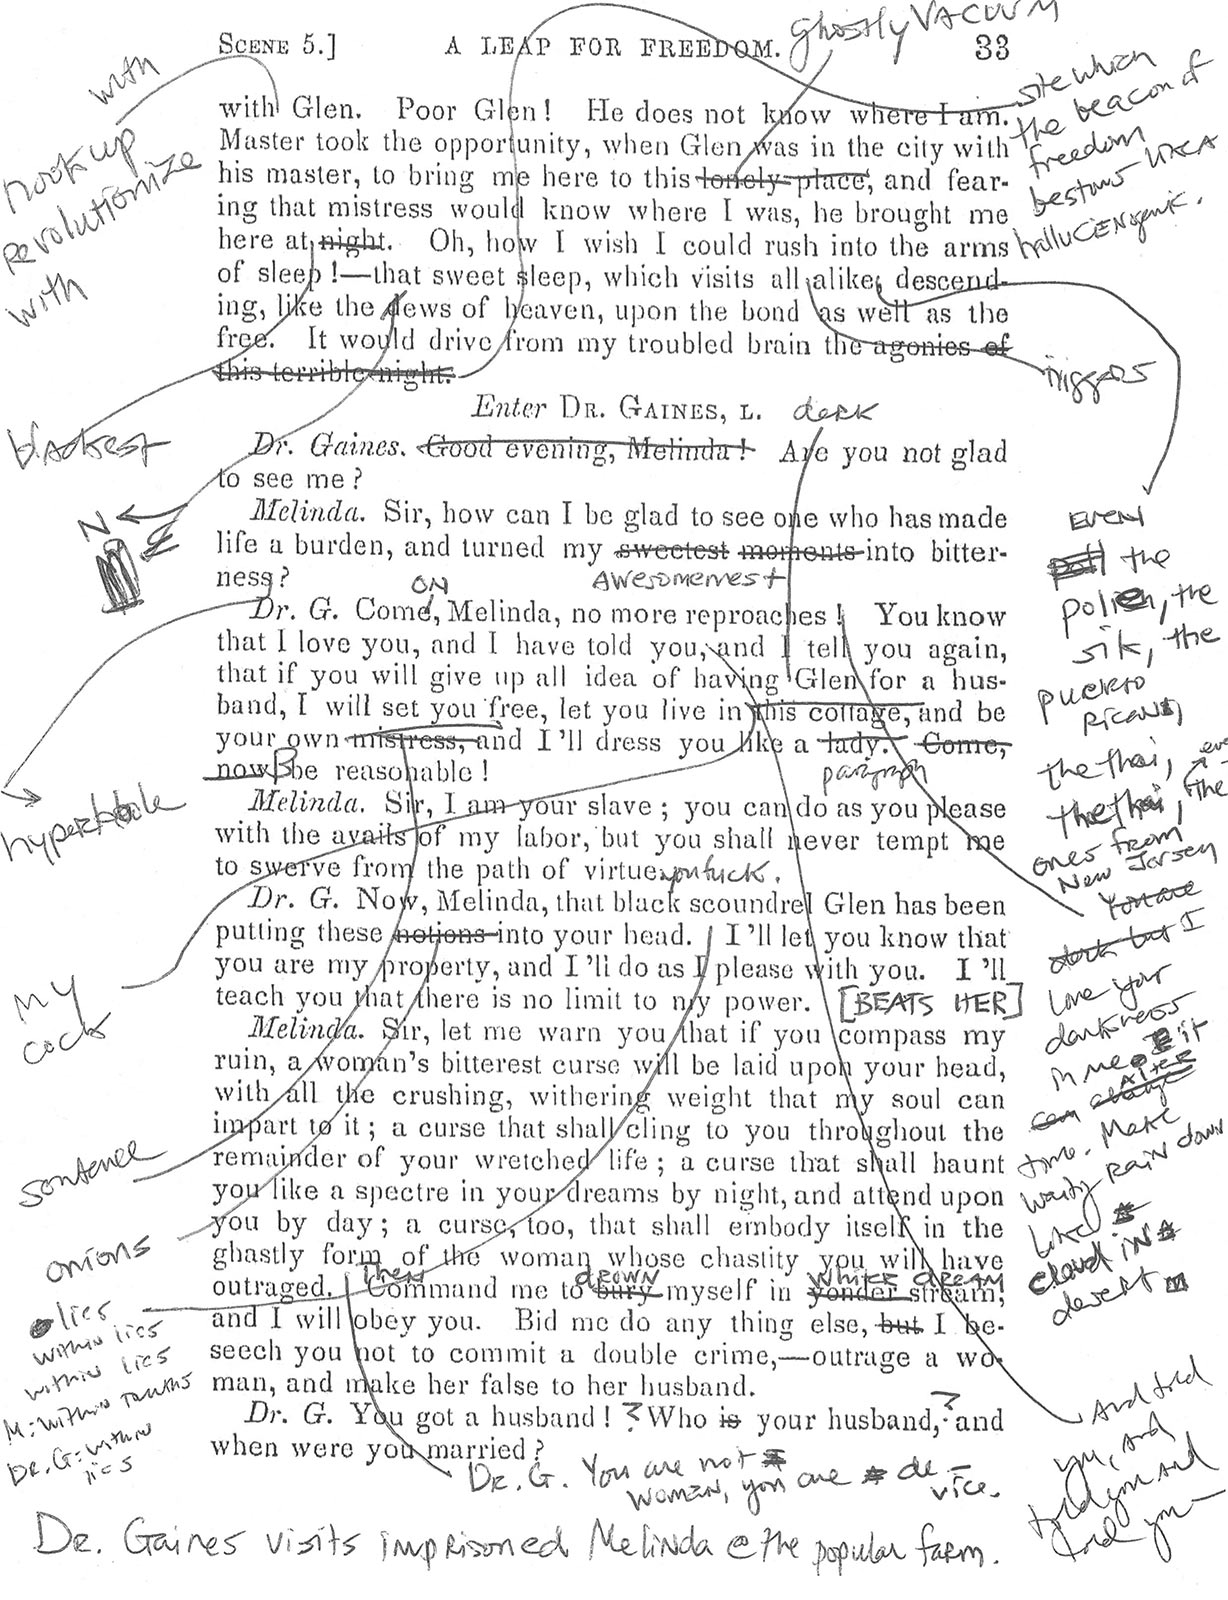 ghostly VACUUM
SCENE 5.] A LEAP FOR FREEDOM. 33
with
hook up
revolutionize
with
site which
the beacon of
freedom
bestows
halluCENogenic.
with Glen. Poor Glen! He does not know where I am.
Master took the opportunity, when Glen was in the city with
his master, to bring me here to this lonely place, and fear-
ing that mistress would know where I was, he brought me
here at night. Oh, how I wish I could rush into the arms
of sleep!—that sweet sleep, which visits all alike, descend-
ing, like the dews of heaven, upon the bond as well as the
free. It would drive from my troubled brain the agonies of
this terrible night.
triggers
blackest
Enter DR. GAINES, L. dark
Dr. Gaines. Good evening, Melinda! Are you not glad
to see me?
Melinda. Sir, how can I be glad to see one who has made
life a burden, and turned my sweetest moments into bitter-
ness?
N
ON AWESOMEMEST
Dr. G. Come, Melinda, no more reproaches! You know
that I love you, and I have told you, and I tell you again,
that if you will give up all idea of having Glen for a hus-
band, I will set you free, let you live in this cottage, and be
your own mistress, and I'll dress you like a lady. Come,
now B be reasonable!
paragraph
EVEN
the
polish, the
sik, the
puerto
ricans,
the thai,
the thai, the
ones from
New Jersey
You are
dark but I
love your
darkness
in me. It
can
ALTER
change
time. Make
waity rain down
like
cloud in
desert
hyperbole
Melinda. Sir, I am your slave; you can do as you please
with the avails of my labor, but you shall never tempt me
to swerve from the path of virtue you fuck.
Dr. G. Now, Melinda, that black scoundrel Glen has been
putting these notions into your head. I'll let you know that
you are my property, and I'll do as I please with you. I'll
teach you that there is no limit to my power. [BEATS HER]
my
cock
Melinda. Sir, let me warn you that if you compass my
ruin, a woman's bitterest curse will be laid upon your head,
with all the crushing, withering weight that my soul can
impart to it; a curse that shall cling to you throughout the
remainder of your wretched life; a curse that shall haunt
you like a spectre in your dreams by night, and attend upon
you by day; a curse, too, that shall embody itself in the
ghastly form of the woman whose chastity you will have
THEN DROWN WHITER DREAM
outraged. Command me to bury myself in yonder stream,
and I will obey you. Bid me do any thing else, but I be-
seech you not to commit a double crime,—outrage a wo-
man, and make her false to her husband.
sentence
onions
lies
within lies
within lies
M: within truths
Dr. G: within
lies
Dr. G. You got a husband! ? Who is your husband,? and
when were you married?
And told
you, and
told you and
told you—
Dr. G. You are not
woman, you are de-
vice.
Dr. Gaines visits imprisoned Melinda @ the popular farm.